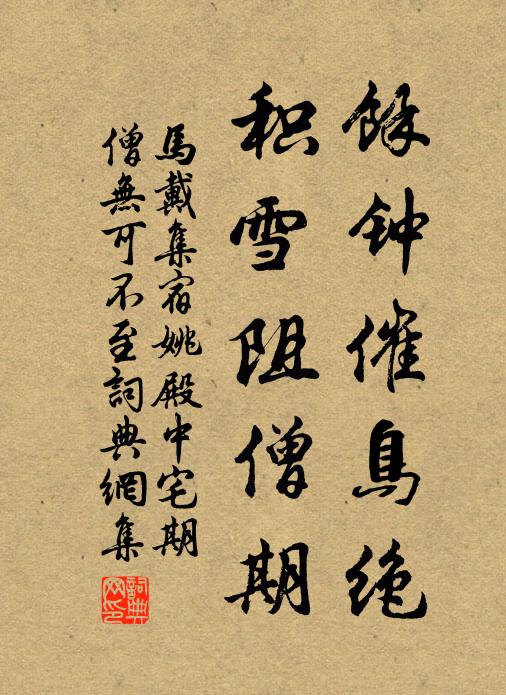 餘钟催鳥绝
积雪阻僧期
馬戴集宿姚殿中宅期
僧無可不至詞典網集
詞典
网印